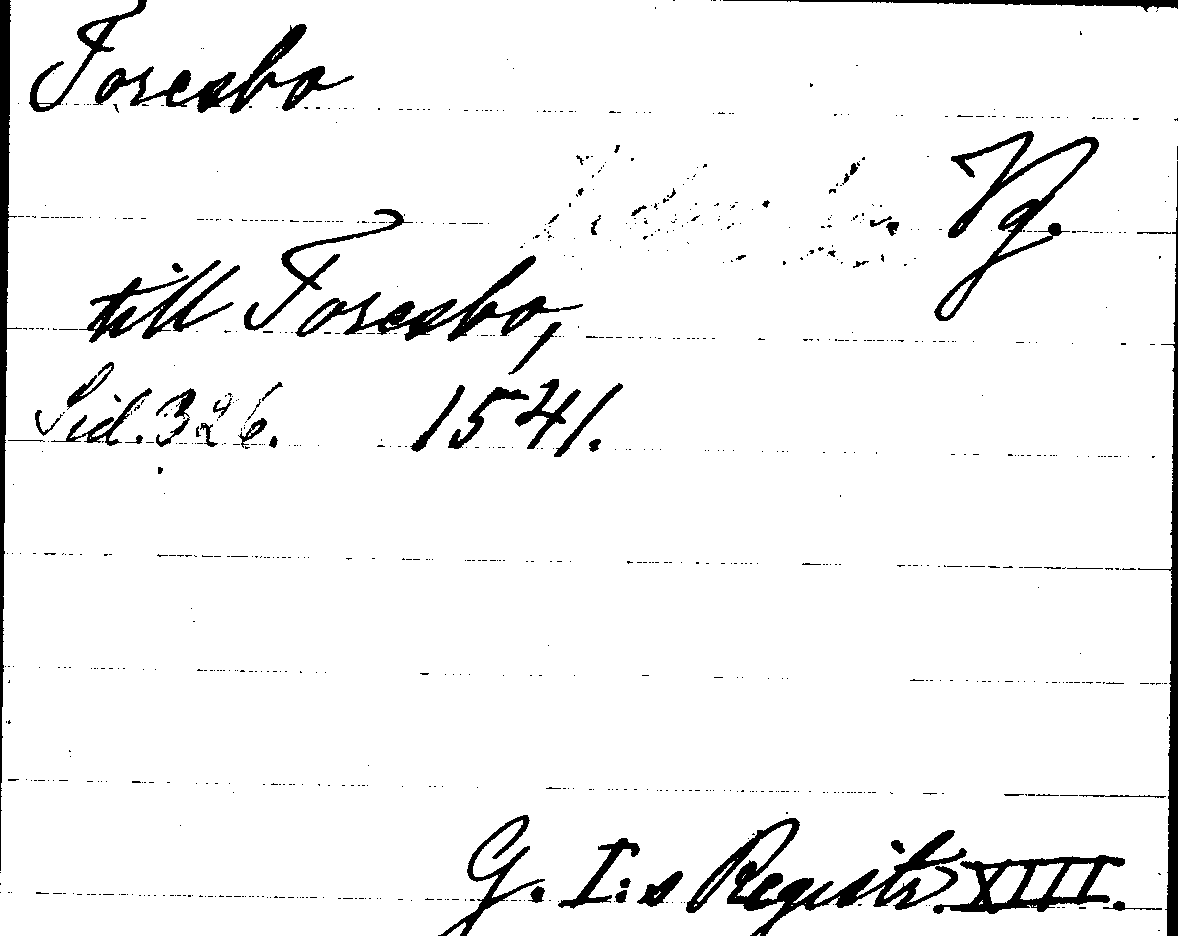 Toresbo
Vg.
till Toresbo,
Sid. 326. 1541.
G. I:s Registr. XIII.